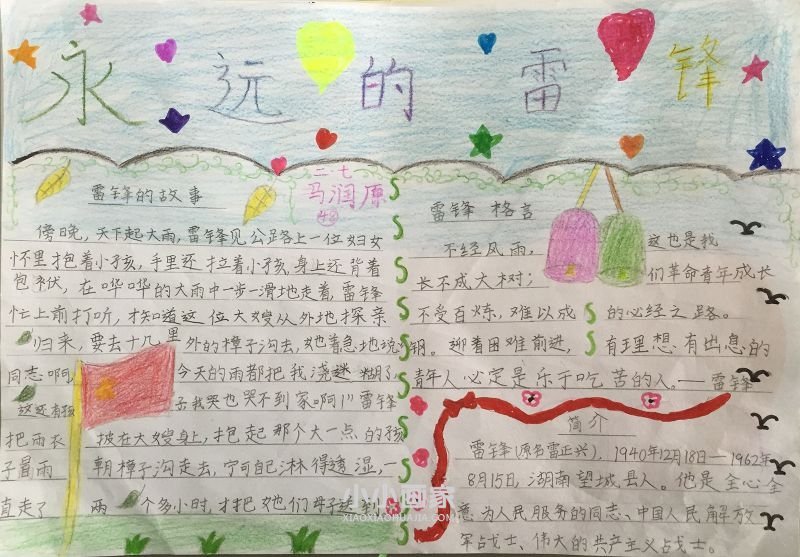 永远的雷锋
二.七
马润原
42
雷锋的故事
傍晚，天下起大雨，雷锋见公路上一位妇女
怀里抱着小孩，手里还拉着小孩，身上还背着
包袱，在哗哗的大雨中一步一滑地走着，雷锋
忙上前打听，才知道这位大嫂从外地探亲
归来，要去十几里外的樟子沟去，她着急地说
同志啊，今天的雨都把我浇迷糊了，
这还有孩子我哭也哭不到家啊！雷锋
把雨衣披在大嫂身上，抱起那个大一点的孩
子冒雨朝樟子沟走去，宁可自己淋得透湿，一
直走了两个多小时，才把她们母子送到
雷锋 格言
不经风雨，
长不成大树；
不受百炼，难以成
钢。迎着困难前进，
这也是我
们革命青年成长
的必经之路。
有理想有出息的
青年人必定是乐于吃苦的人。——雷锋
简介
雷锋(原名雷正兴)，1940年12月18日—1962年
8月15日，湖南望城县人。他是全心全
意为人民服务的同志、中国人民解放
军战士、伟大的共产主义战士。
小小画家
XIAOXIAOHUAJIA.COM